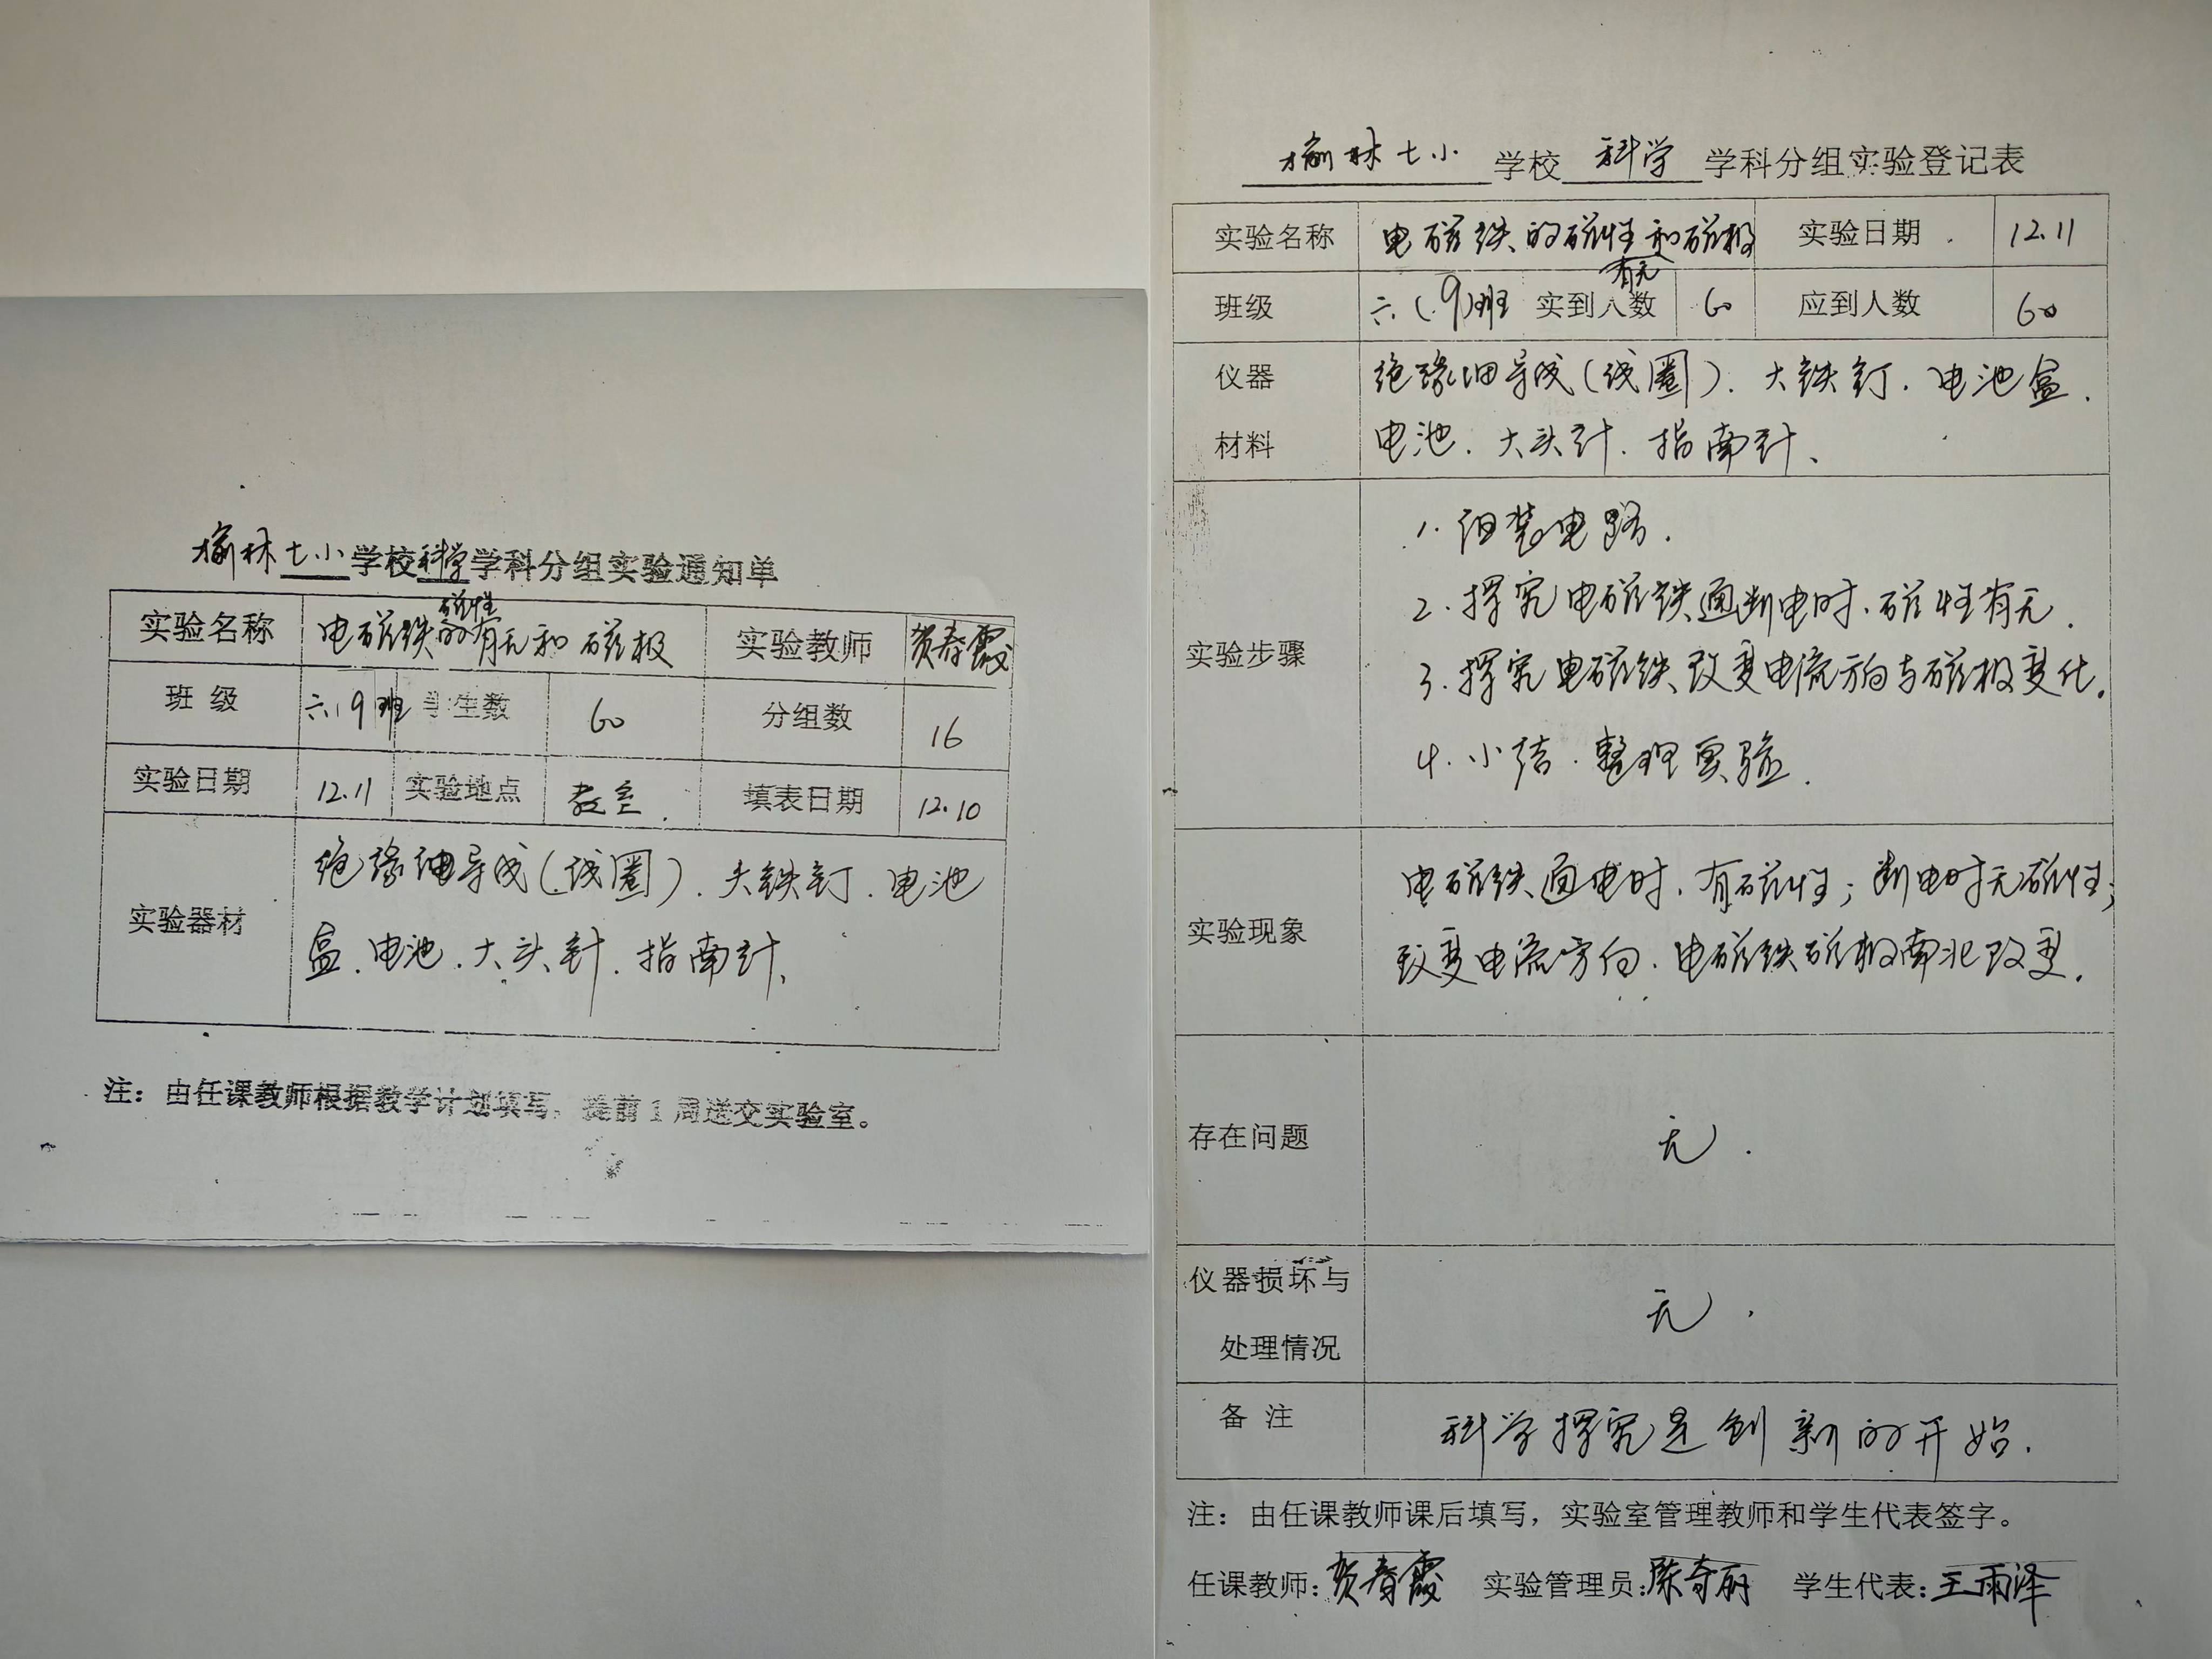 榆林七小学校科学学科分组实验通知单
实验名称 电磁铁的磁性有无和磁极 实验教师 贺春霞
班 级 六(9)班 学生数 60 分组数 16
实验日期 12.11 实验地点 教室. 填表日期 12.10
实验器材
绝缘细导线(线圈). 大铁钉. 电池
盒. 电池. 大头针. 指南针.
注：由任课教师根据教学计划填写，提前1周送交实验室。
榆林七小学校 科学 学科分组实验登记表
实验名称 电磁铁的磁性有无和磁极 实验日期 12.11
班级 六(9)班 实到人数 60 应到人数 60
仪器 绝缘细导线(线圈). 大铁钉. 电池盒.
材料 电池. 大头针. 指南针.
实验步骤
1. 组装电路.
2. 探究电磁铁通断电时.磁性有无.
3. 探究电磁铁改变电流方向与磁极变化.
4. 小结.整理实验.
实验现象
电磁铁通电时.有磁性；断电时无磁性；
改变电流方向.电磁铁磁极南北改变.
存在问题 无.
仪器损坏与
处理情况 无.
备 注 科学探究是创新的开始.
注：由任课教师课后填写，实验室管理教师和学生代表签字。
任课教师：贺春霞 实验管理员：陈奇丽 学生代表：王雨泽